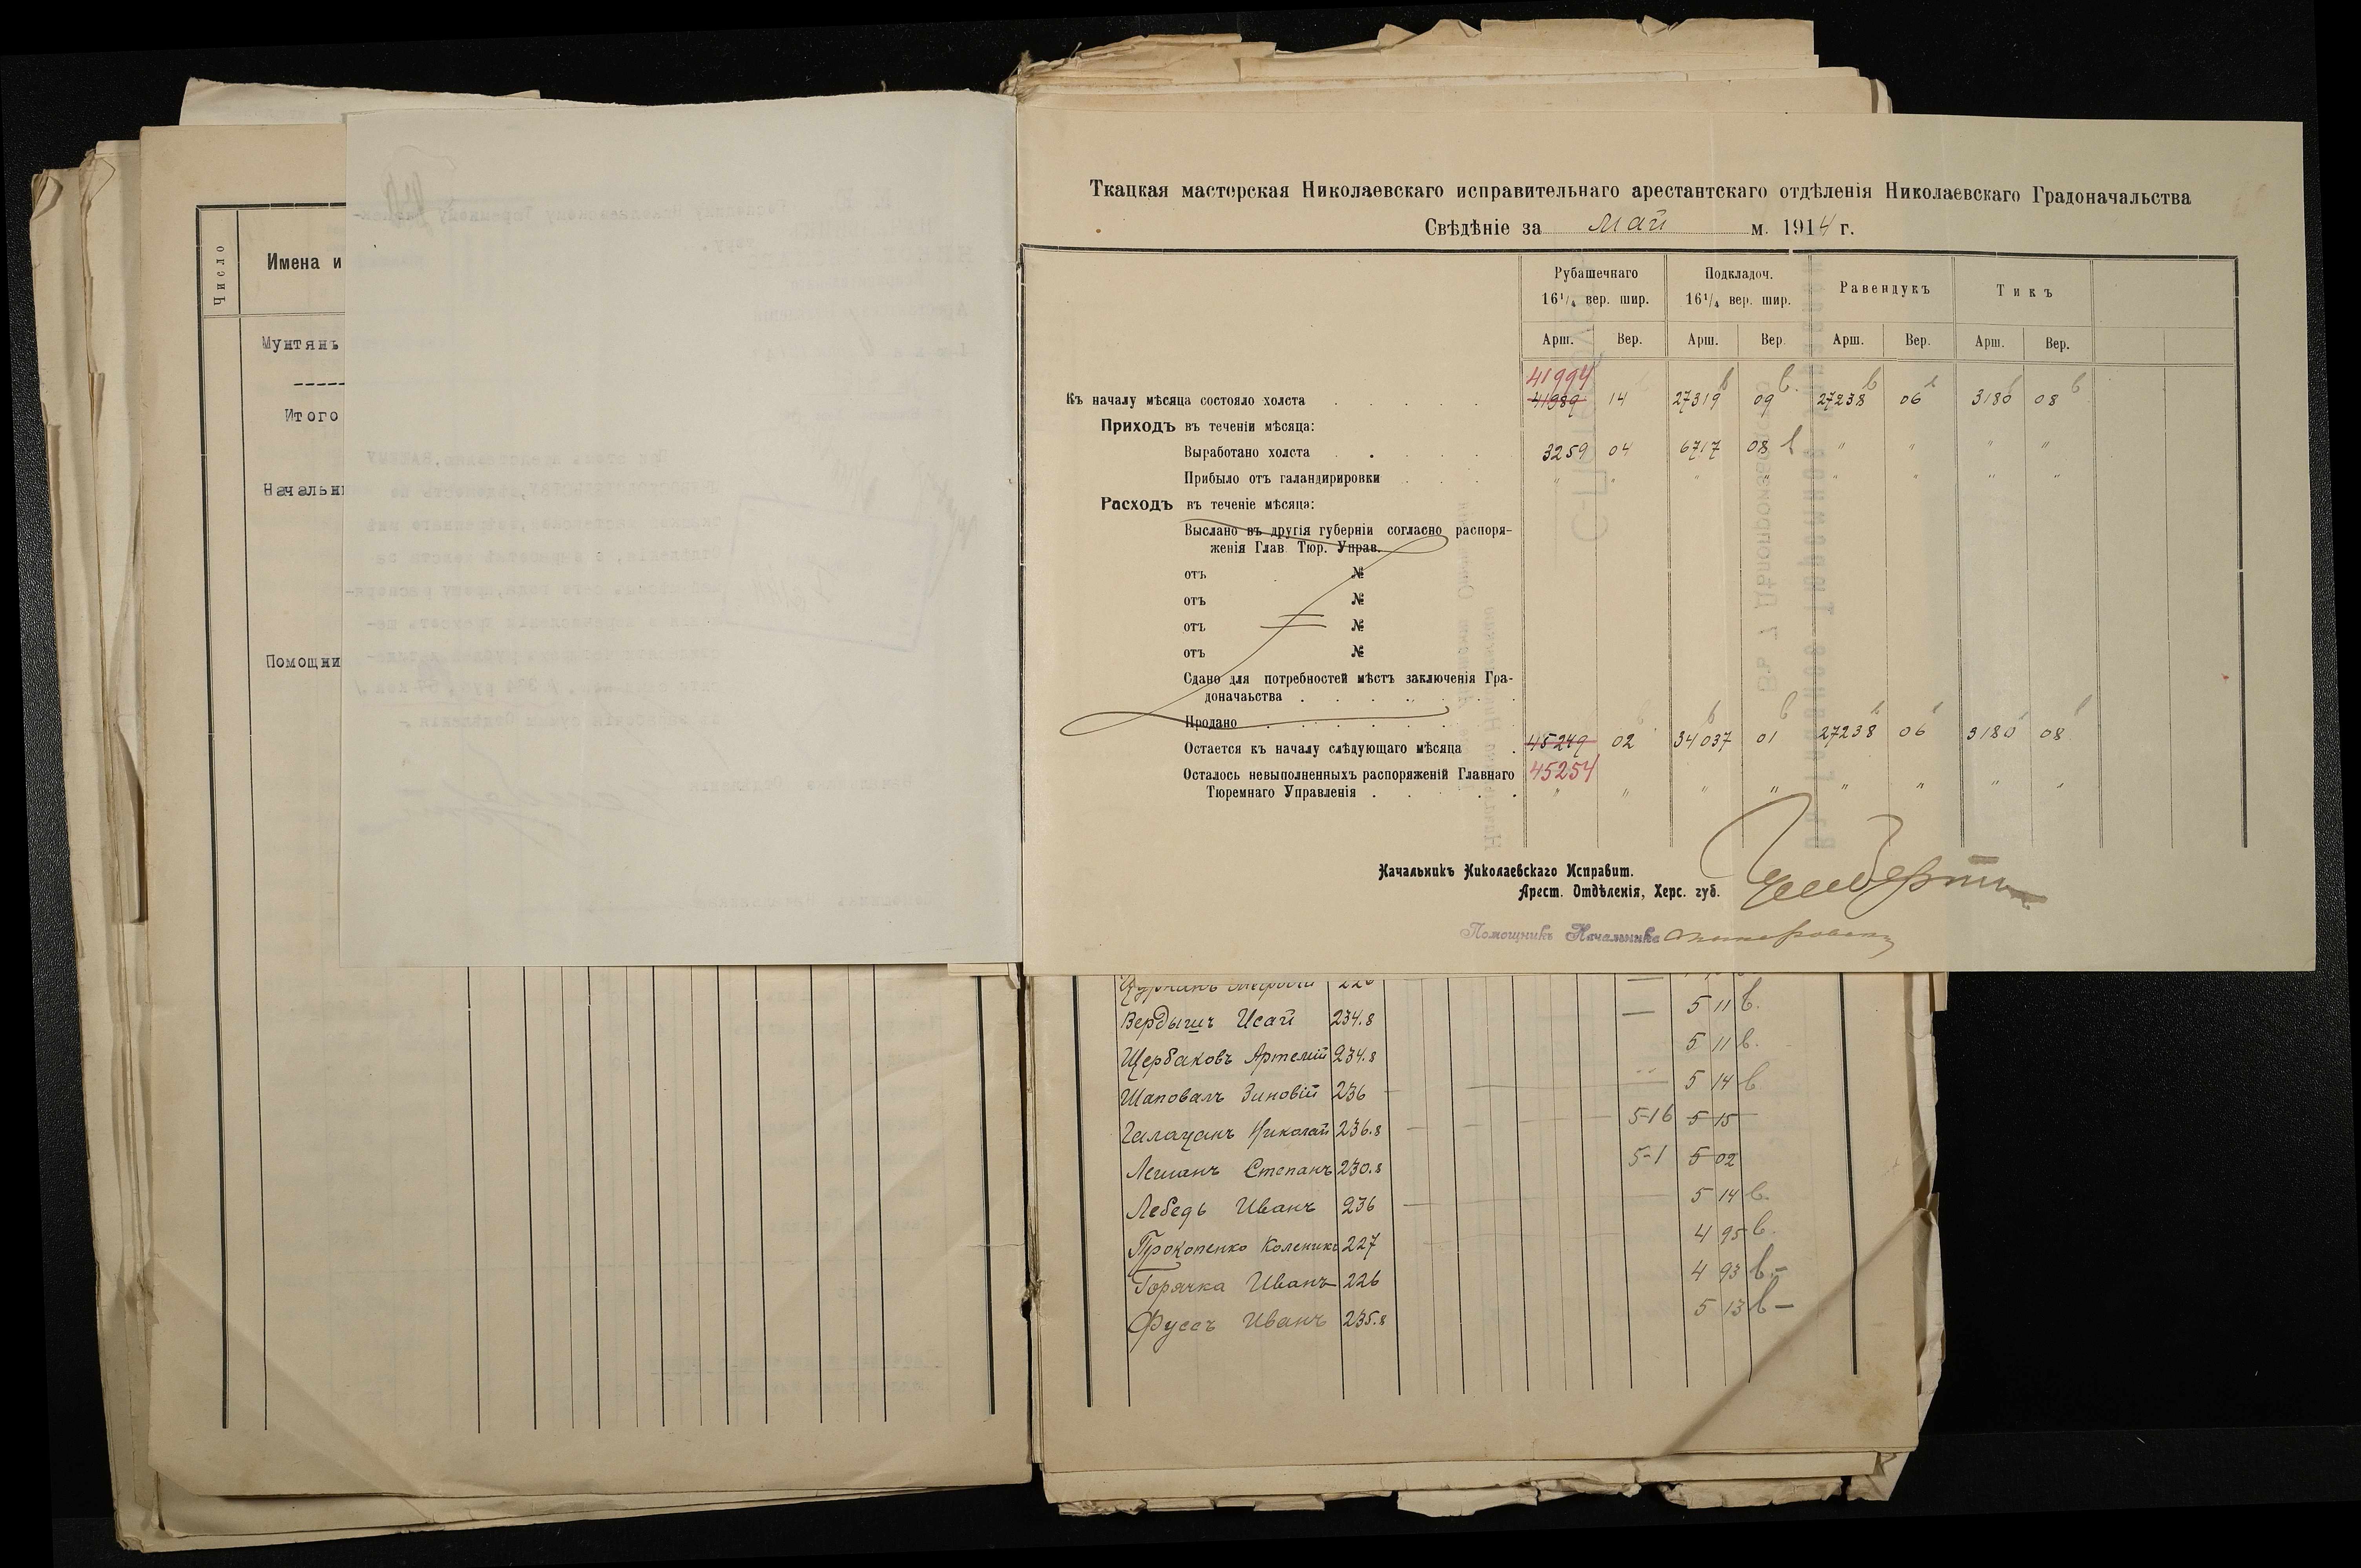 Число
Имена и
Мунтянъ
Итого
Начальни
Помощни
Ткацкая мастерская Николаевскаго исправительнаго арестантскаго отдѣленія Николаевскаго Градоначальства
Свѣдѣніе за май м. 1914 г.
Рубашечнаго 16¹/₄ вер. шир. Подкладоч. 16¹/₄ вер. шир. Равендукъ Тикъ
Арш. Вер. Арш. Вер. Арш. Вер. Арш. Вер.
41994
Къ началу мѣсяца состояло холста 41989 14 27319 09 27238 06 3180 08
Приходъ въ теченіи мѣсяца:
Выработано холста 3259 04 6717 08 " " " "
Прибыло отъ галандирировки " " " " " " " "
Расходъ въ теченіе мѣсяца:
Выслано въ другія губерніи согласно распоря-
женія Глав. Тюр. Управ.
отъ №
отъ №
отъ №
отъ №
Сдано для потребностей мѣстъ заключенія Гра-
доначаьства
Продано
Остается къ началу слѣдующаго мѣсяца 45249 02 34037 01 27238 06 3180 08
45254
Осталось невыполненныхъ распоряженій Главнаго
Тюремнаго Управленія " " " " " " " "
Начальникъ Николаевскаго Исправит.
Арест. Отдѣленія, Херс. губ.
Помощникъ Начальника
Вердышъ Исай 234.8 5 11 в.
Щербаковъ Артемій 234.8 5 11 в.
Шаповалъ Зиновій 236 5 14 в
Галацанъ Николай 236.8 5-16 5 15
Лешанъ Степанъ 230.8 5-1 5 02
Лебедь Иванъ 236 5 14 в.
Прокопенко 227 4 95 в.
Горячка Иванъ 226 4 93 в.
Фуссъ Иванъ 235.8 5 13 в